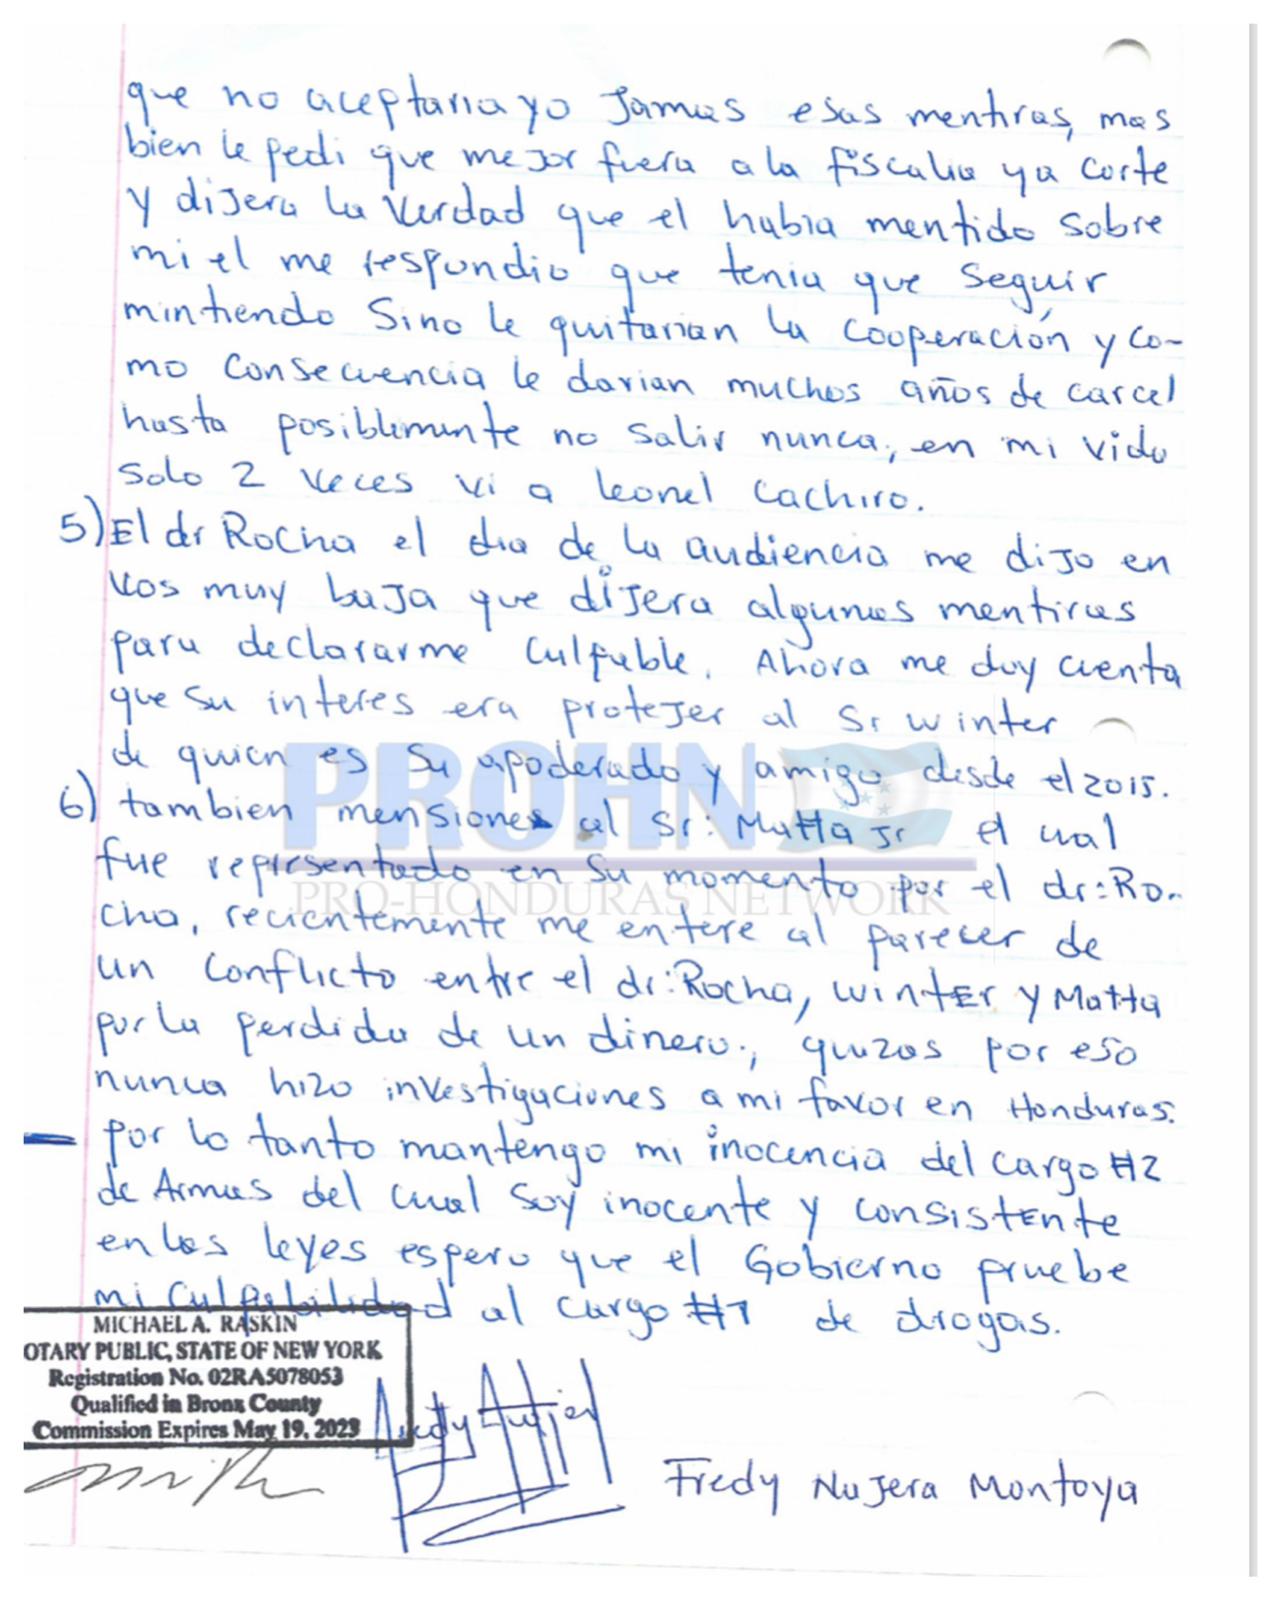 que no aceptaria yo Jamas esas mentiras, mas
bien le pedi que mejor fuera a la fiscalia y a Corte
y dijera la Verdad que el habia mentido Sobre
mi el me respondio que tenia que Seguir
mintiendo Sino le quitarian la Cooperación y Co-
mo Consecuencia le darian muchos años de carcel
hasta posiblemente no Salir nunca, en mi vida
Solo 2 Veces vi a leonel Cachiro.
5) El dr Rocha el dia de la audiencia me dijo en
Vos muy baja que dijera algunas mentiras
para declararme Culpable. Ahora me doy cuenta
que Su interes era protejer al Sr winter
de quien es Su apoderado y amigo desde el 2015.
6) tambien mensione al Sr: Matta Jr el cual
fue representado en Su momento por el dr: Ro-
cha, recientemente me entere al parecer de
un Conflicto entre el dr: Rocha, WINTER y Matta
por la perdida de un dinero., quizas por eso
nunca hizo investigaciones a mi favor en Honduras.
- por lo tanto mantengo mi inocencia del Cargo #2
de Armas del cual Soy inocente y ConsisTENte
en las leyes espero que el Gobierno pruebe
mi Culpabilidad al Cargo #1 de drogas.
PROHN
PRO-HONDURAS NETWORK
MICHAEL A. RASKIN
OTARY PUBLIC, STATE OF NEW YORK
Registration No. 02RA5078053
Qualified in Bronx County
Commission Expires May 19, 2023
Fredy Najera Montoya